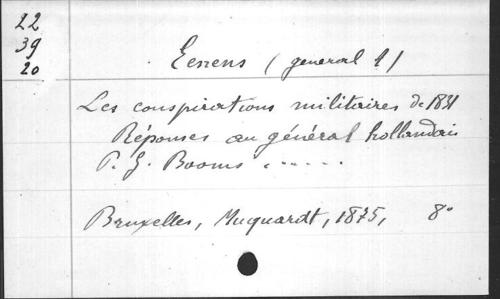 22
39
20
Eenens (général A)
Les conspirations militaires de 1831
Réponses au général hollandais
P. G. Booms . . . . . .
Bruxelles, Muquardt, 1875, 8°